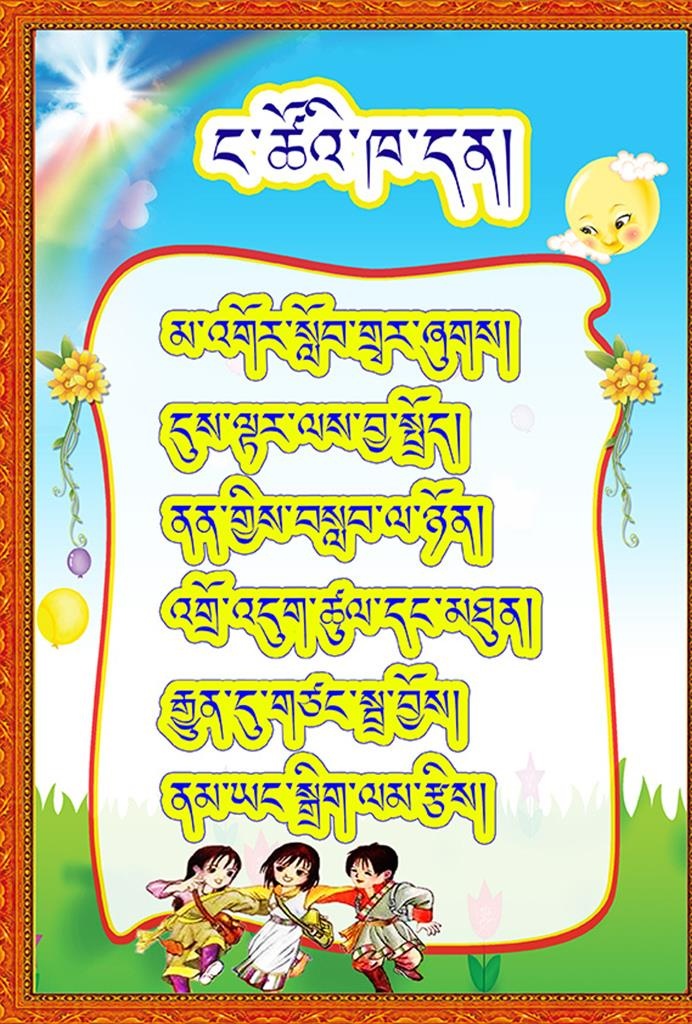 ང་ཚོའི་ཁ་དན།
མ་འགོར་སློབ་གྲྭར་ཞུགས།
དུས་ལྟར་ལས་བྱ་སྤྲོད།
ནན་གྱིས་བསླབ་ལ་ཉོན།
འགྲོ་འདུག་ཚུལ་དང་མཐུན།
རྒྱུན་དུ་གཙང་སྦྲ་བྱོས།
ནམ་ཡང་སྒྲིག་ལམ་རྩིས།